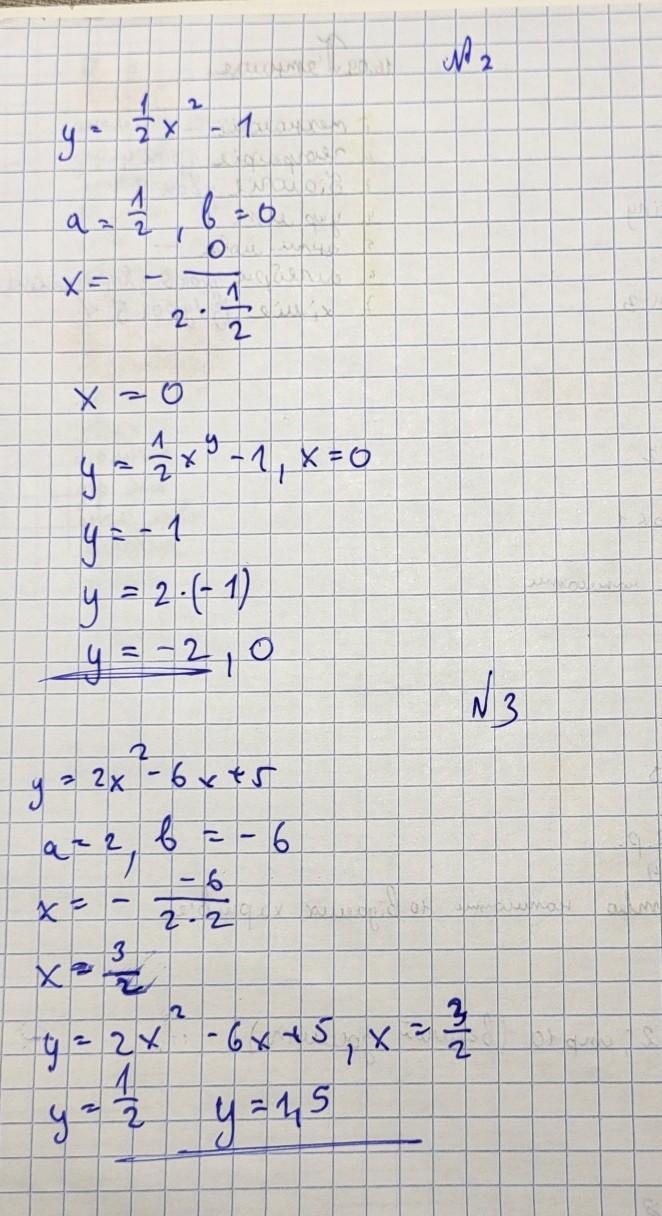 № 2
y = 1/2 x² - 1
a = 1/2 , b = 0
x = - 0/(2 · 1/2)
x = 0
y = 1/2 x^y - 1, x = 0
y = - 1
y = 2·(-1)
y = -2, 0
№ 3
y = 2x² - 6x + 5
a = 2, b = - 6
x = - -6/(2·2)
x = 3/2
y = 2x² - 6x + 5, x = 3/2
y = 1/2 y = 1,5